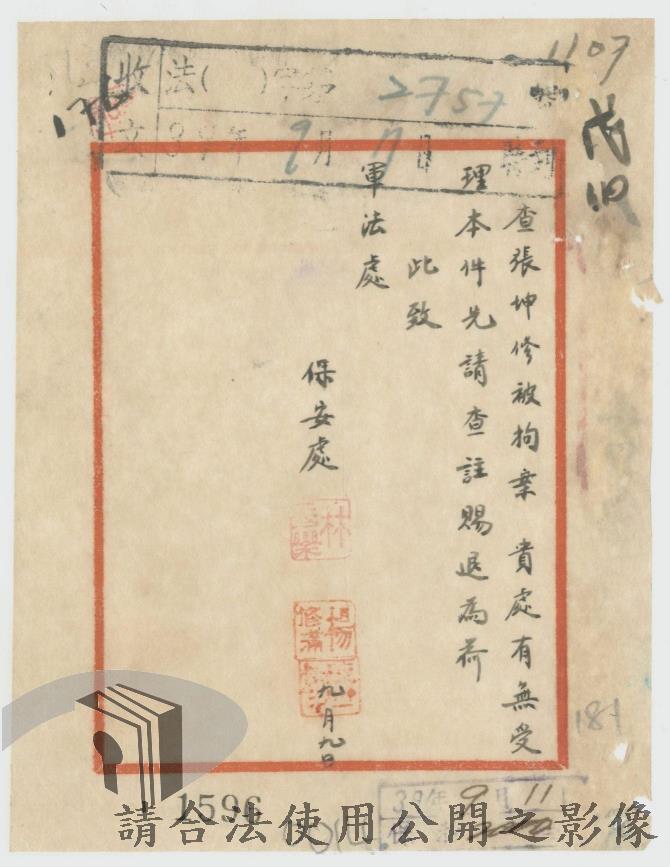 1107
收文
法( )字第2757號
39年9月 日
查張坤修被拘案 貴處有無受
理本件先請查註賜退為荷
此致
軍法處
保安處
九月九日
181
39年9月11
1596
請合法使用公開之影像